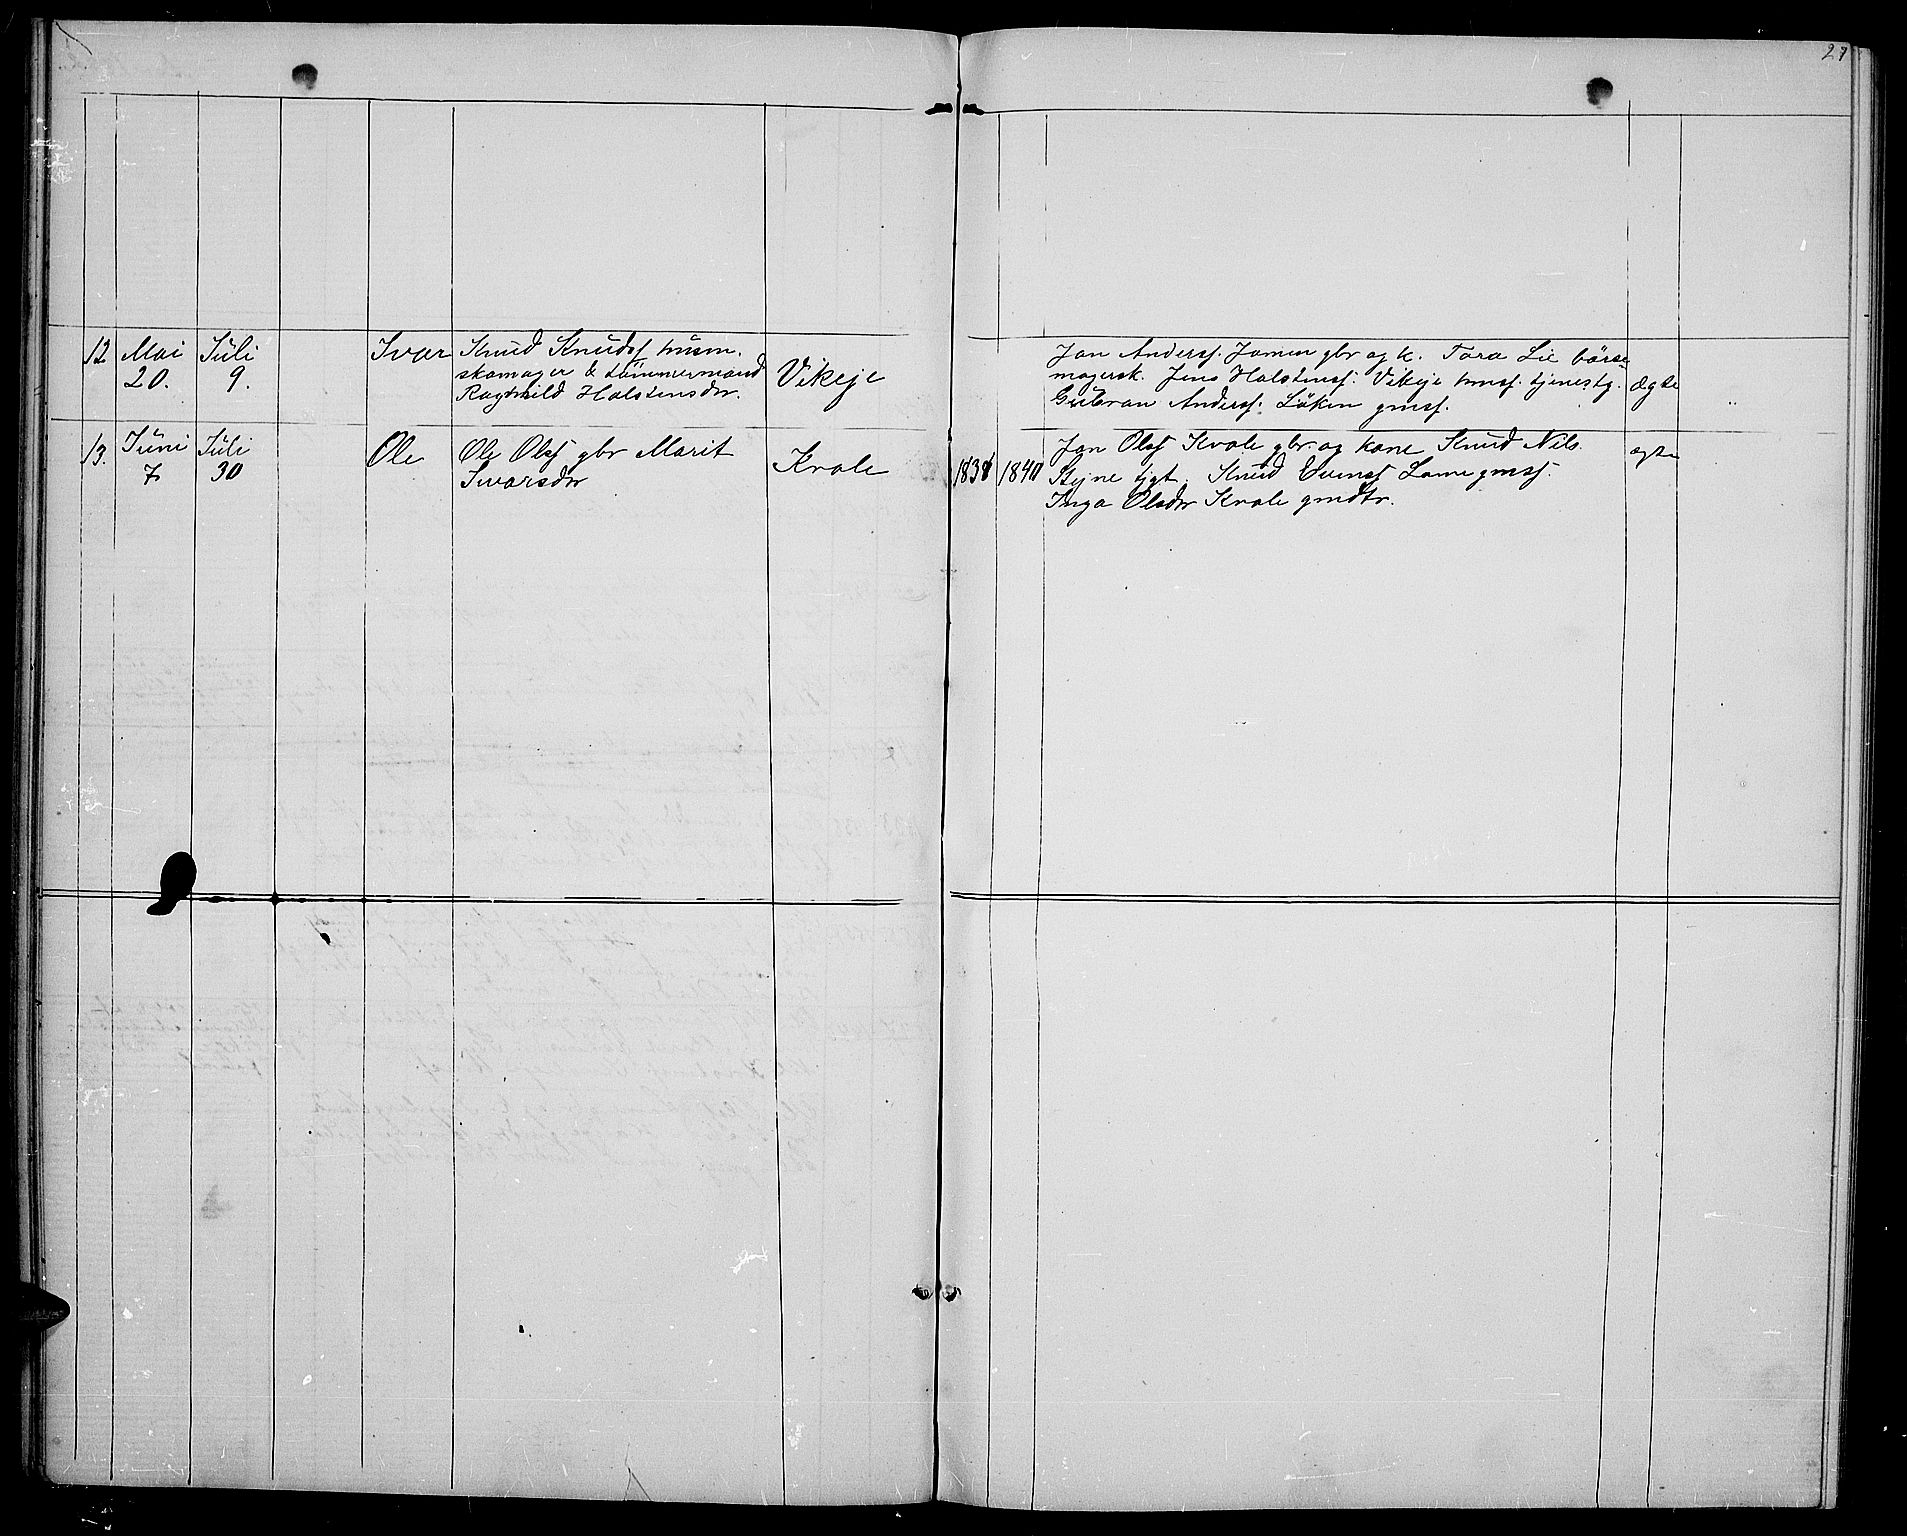 27
12 Mai 20. Juli 9. Ivar Knud Knudsf husm.
skomager & tømmermand
Ragnhild Halstensdr.
Vikeje
Jon Anderss. Jomen gbr og k. Tora Lie børse
magersk. Jens Halstensf. Vikeje hmsf. tjenestg.
Gulbran Anderss. Løken gmsf.
Ægte
13. Juni 7 Juli 30 Ole Ole Olsf gbr Marit
Ivarsdr
Kvale
1838 1840
Jon Olsf Kvale gbr og kone Knud Nils
Stejne tjgt. Knud Evensf Lome gmsf.
Inga Olsdr Kvale gmdtr.
ægte